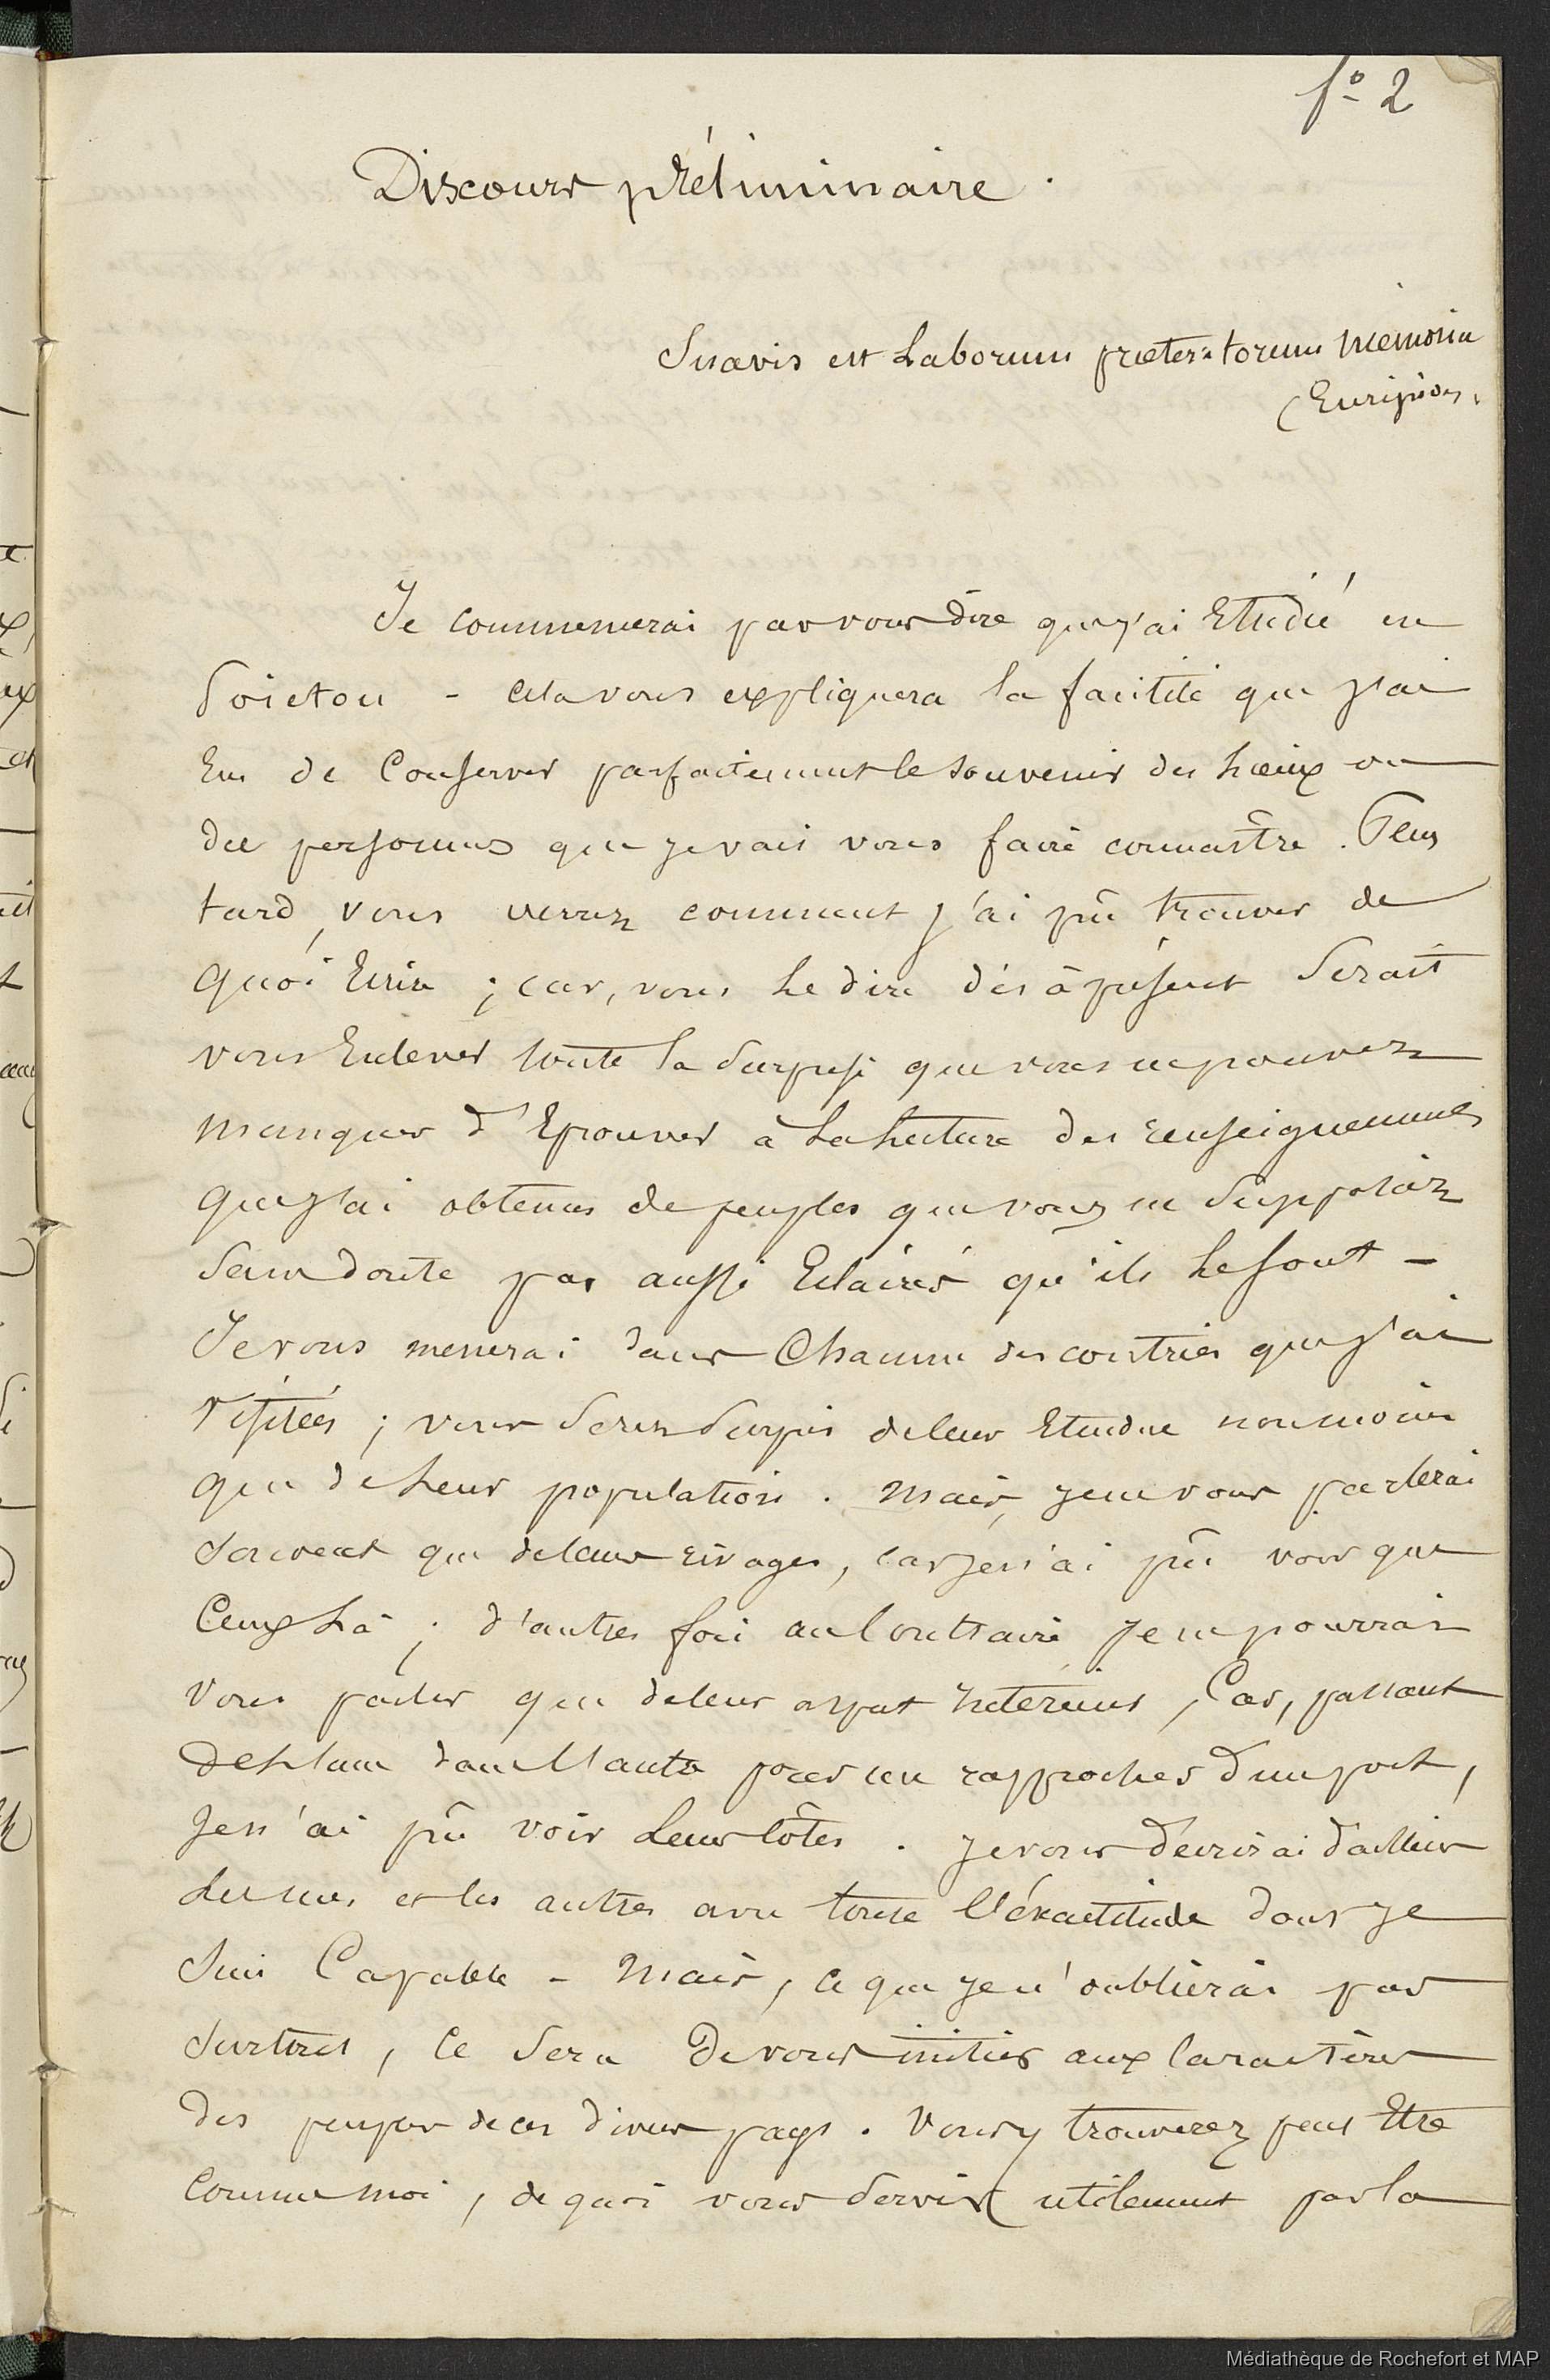 fo 2
Discours préliminaire.
Suavis est Laborum præteritorum memoria
(Euripides.
Je commencerai par vous dire que j'ai Etudié en
 - cela vous expliquera la facilité que j'ai
Eu de Conserver parfaitement le souvenir des Lieux ou
des personnes que je vais vous faire connaître. Plus
tard, vous verrez comment j'ai pû trouver de
quoi Ecrire ; car, vous Le dire dès à présent Serait
vous Enlever toute la Surprise que vous ne pouvez
manquer d'Eprouver à La Lecture des renseignements
que j'ai obtenus de peuples que vous ne Supposiez
Sans doute pas aussi Eclairés qu'ils Le sont -
Je vous menerai dans Chacune des contrées que j'ai
visitées ; vous Serez Surpris de leur Etendue non moins
que de Leur population. Mais, je ne vous parlerai
Souvent que de leurs rivages, car je n'ai pû voir que
Ceux Là ; d'autres fois au Contraire, je ne pourrai
vous parler que de leur aspect Intérieur, Car, passant
de L'une dans L'autre pour me rapprocher d'un port,
Je n'ai pû voir Leurs Côtes. Je vous décrirai d'ailleurs
Les unes et les autres avec toute L'éxactitude dont je
Suis Capable - Mais, ce que je n'oublierai pas
Surtout, Ce Sera De vous initier aux Caractères
des peuples de ces divers pays. Vous y trouverez peut Etre
Comme moi, de quoi vous Servir utilement par la
Médiathèque de Rochefort et MAP